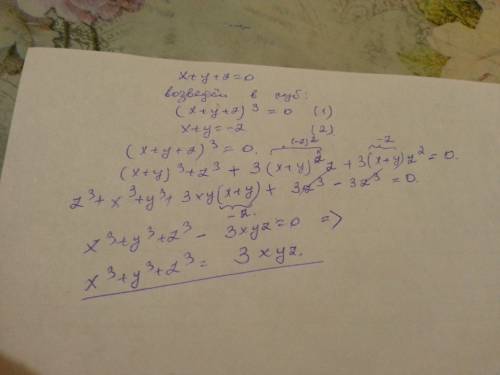 x+y+z=0
возведём в куб:
(x+y+z)³ = 0 (1)
x+y=-z (2)
(x+y+z)³ = 0. (-z)² -z
(x+y)³+z³ + 3(x+y)²z + 3(x+y)z² = 0.
z³+x³+y³+ 3xy(x+y) + 3z³ - 3z³ = 0.
-z.
x³+y³+z³ - 3xyz = 0 =>
x³+y³+z³ = 3xyz.